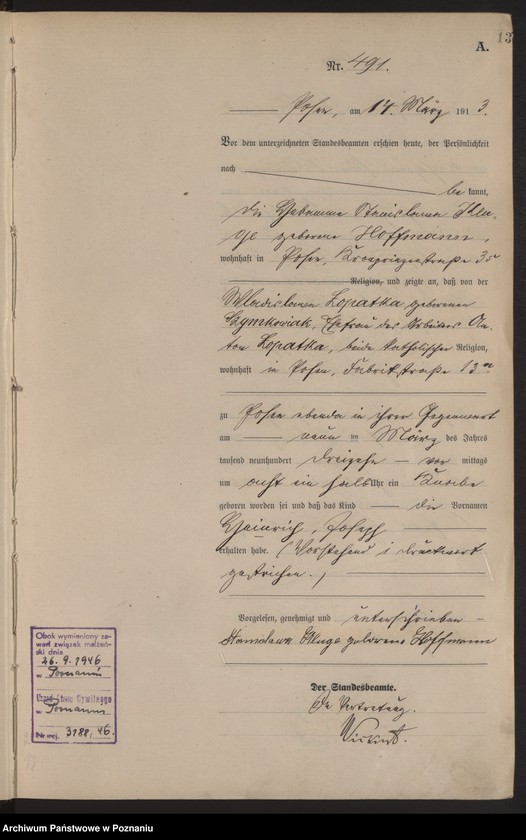 13
A.
Nr. 491.
Posen, am 14. März 1913.
Vor dem unterzeichneten Standesbeamten erschien heute, der Persönlichkeit
nach
be kannt,
die Hebamme Stanislawa Klu-
ge geborene Hoffmann,
wohnhaft in Posen, Kronprinzenstraße
Religion, und zeigte an, daß von der
Wladislawa Lopatka geborenen
Szymkowiak, Ehefrau des Arbeiters An-
ton Lopatka, beide katholischer Religion,
wohnhaft in Posen, Fabrikstraße 13
zu Posen ebenda in ihrer Gegenwart
am neun ten März des Jahres
tausend neunhundert dreizehn vor mittags
um acht ein halb Uhr ein Knabe
geboren worden sei und daß das Kind die Vornamen
Heinrich, Joseph
erhalten habe. (Vorstehend 1 Druckwort
gestrichen.)
Vorgelesen, genehmigt und unterschrieben
Stanislawa Kluge geborene Hoffmann
Der Standesbeamte.
In Vertretung.
Obok wymieniony za-
warł związek małżeń-
ski dnia
26.9.1946
w Poznaniu
Urząd Stanu Cywilnego
w Poznaniu
Nr rej. 3188/46.
Archiwum Państwowe w Poznaniu